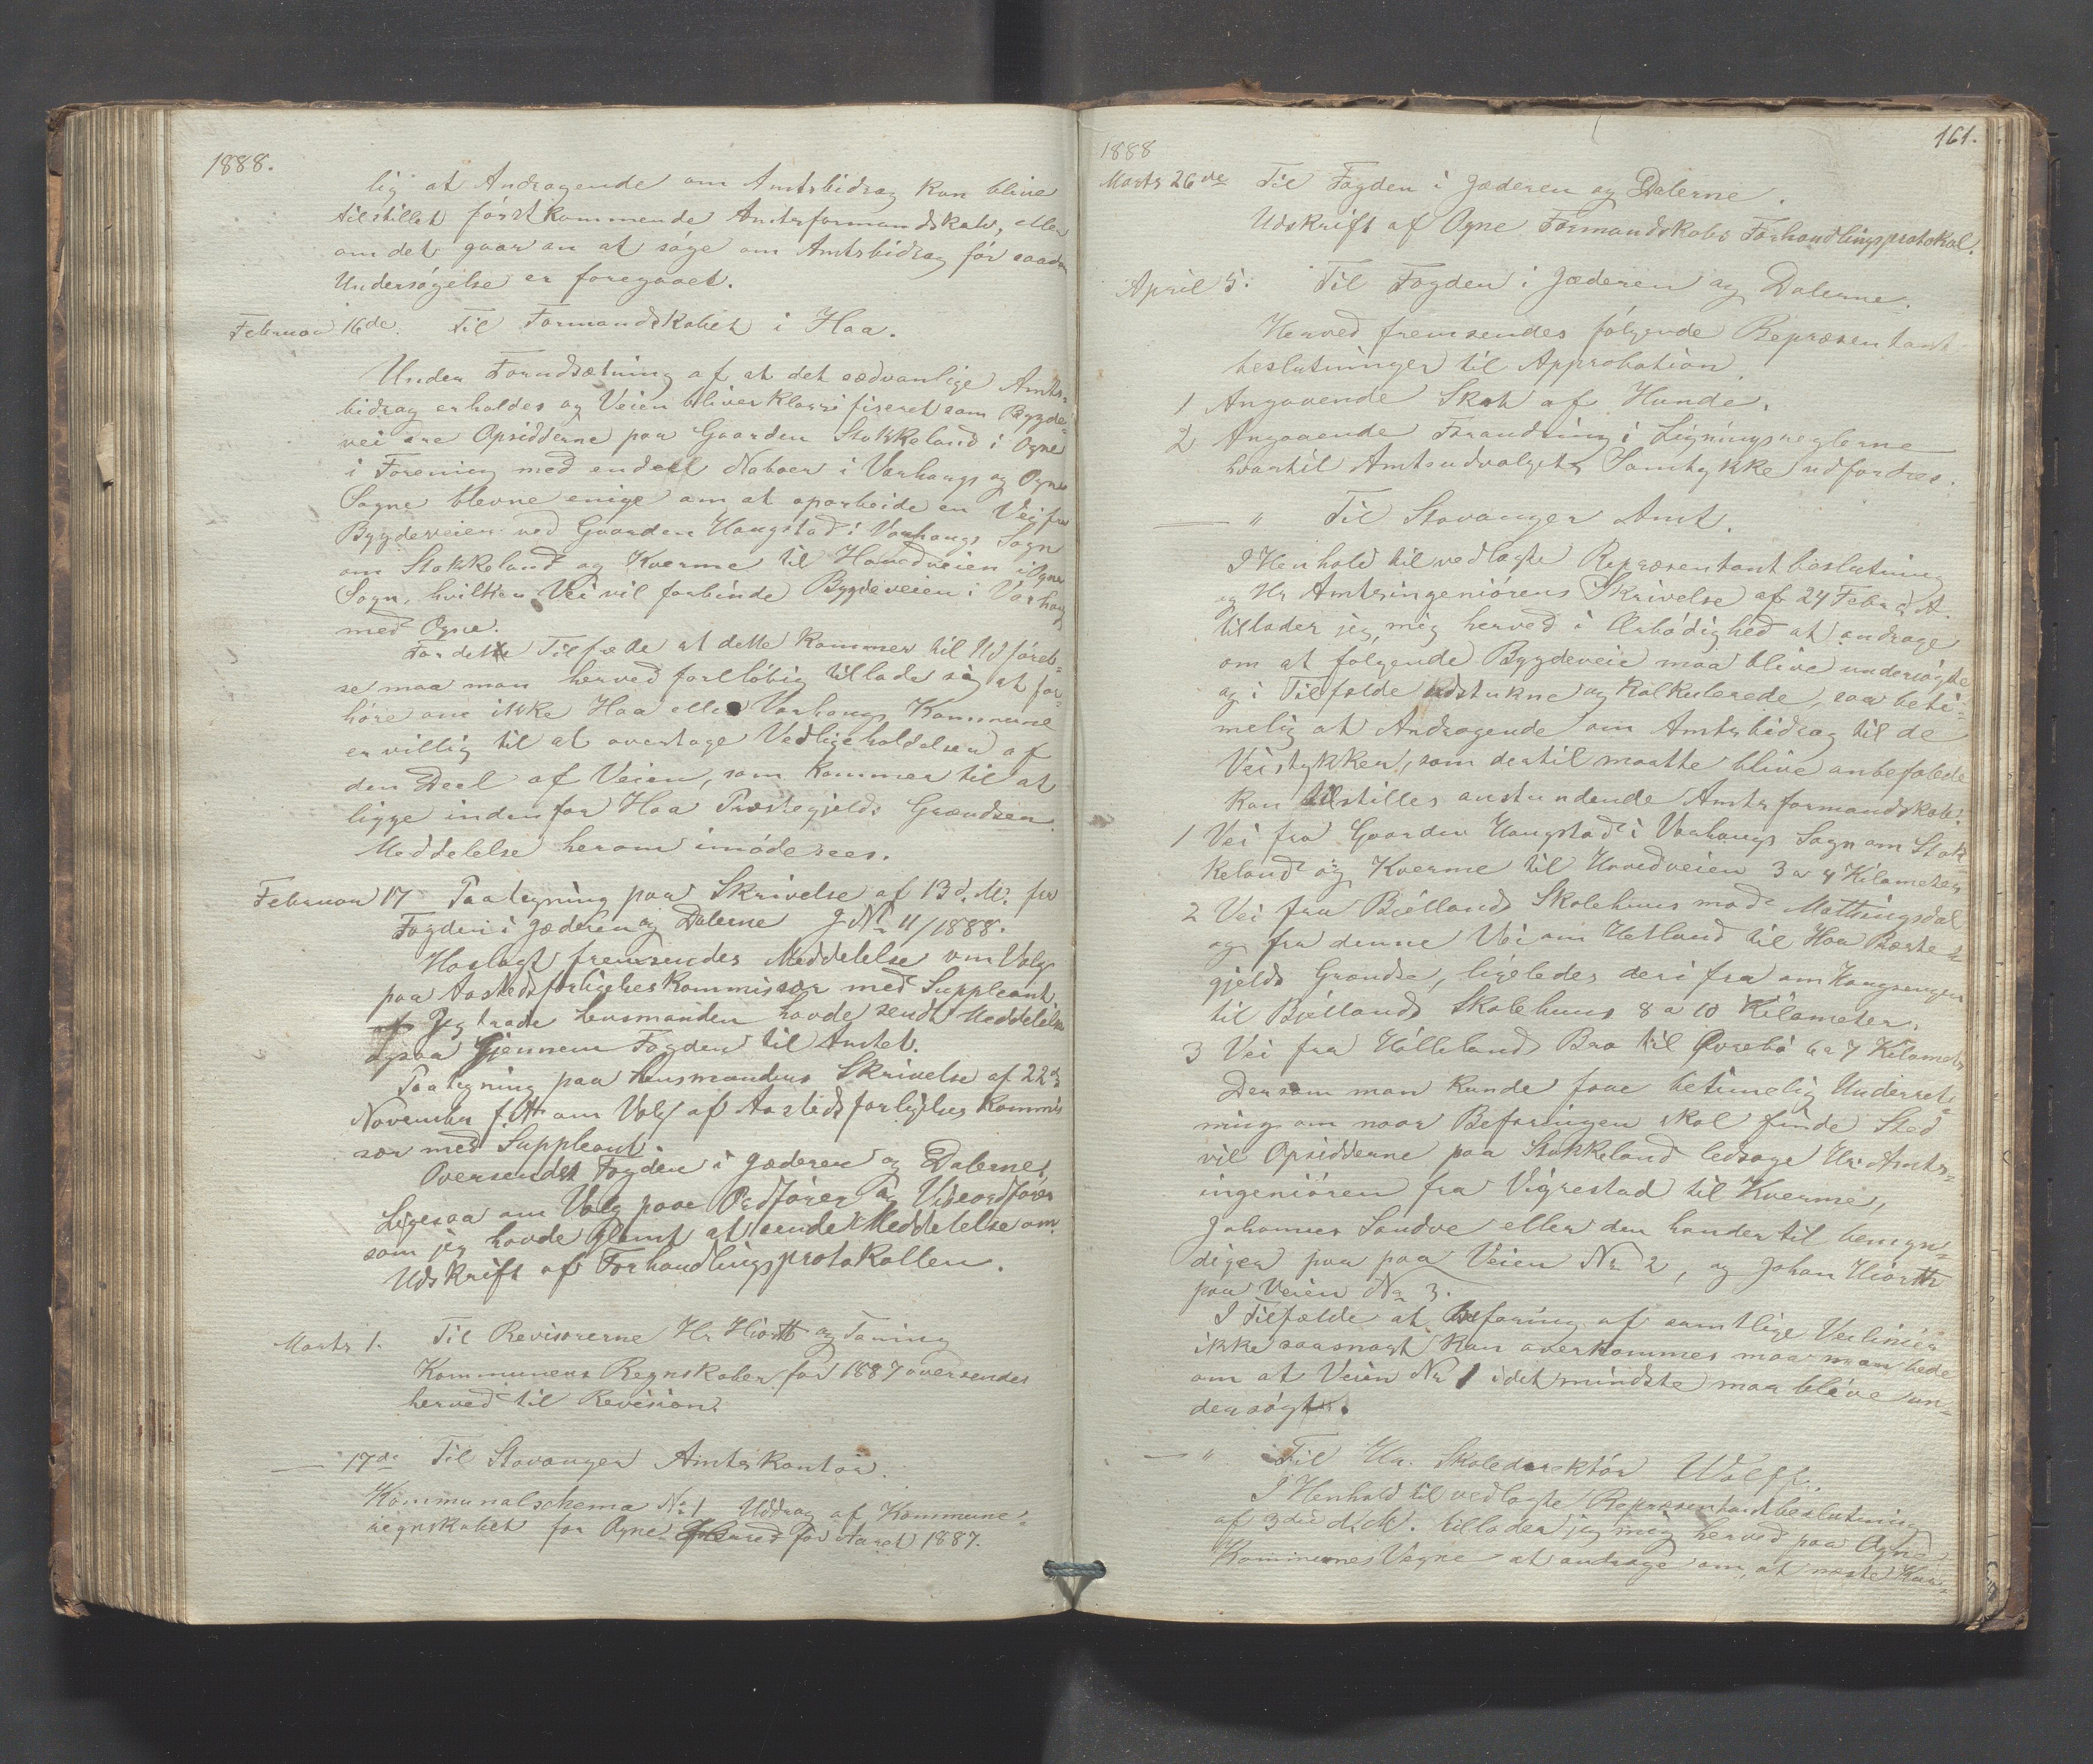 1888.
lig at Andragende om Amtsbidrag kan blive
tilstillet førstkommende Amtsformandskab, eller
om det gaar an at søge om Amtsbidrag før saadan
Undersøgelse er foregaaet.
Februar 16de. Til Formandskabet i Haa.
Under Forudsætning af at det sædvanlige Amts-
bidrag erholdes og Veien bliver klassifiseret som Bygde-
vei ere Opsidderne paa Gaarden Stokkeland i Ogne
i Forening med endeel Naboer i Varhaugs og Ogne
Sogne blevne enige om at oparbeide en Vei fra
Bygdeveien ved Gaarden Haugstad i Varhaugs Sogn
om Stokkeland og Kverme til Hovedveien i Ogne
Sogn, hvilken Vei vil forbinde Bygdeveien i Varhaug
med Ogne.
For dette Tilfælde at dette kommer til Udførel-
se maa man herved forløbig tillade sig at for-
høre om ikke Haa eller Varhaugs Kommune
er villig til at overtage Vedligeholdelsen af
den Deel af Veien, som kommer til at
ligge indenfor Haa Præstegjelds Grændser.
Meddelelse herom imødesees.
Februar 17 Paategning paa Skrivelse af 13 d. M. fra
Fogden i Jæderen og Dalerne J. No 11/1888.
Hoslagt fremsendes Meddelelse om Valg
paa Aastedsforligelseskommissær med Suppleant
af Jeg trode Lensmanden havde sendt Meddelelse
ogsaa Gjennem Fogden til Amtet.
Paategning paa Lensmandens Skrivelse af 22de
November f. A. om Valg af Aastedsforligelses Kommis
sær med Suppleant.
Oversendes Fogden i Jæderen og Dalerne.
Ligesaa om Valg paa Ordfører og Viseordfører
som jeg havde glemt at sende Meddelelse om.
Udskrift af Forhandlingsprotokollen.
Marts 1. Til Revisorerne Hr Hiorth og Taning
Kommunens Regnskaber for 1887 oversendes
herved til Revision.
— 17de Til Stavanger Amtskontor.
Kommunalschema No 1 Uddrag af Kommune-
regnskabet for Ogne Herred for Aaret 1887.
161.
1888
Marts 26de Til Fogden i Jæderen og Dalerne.
Udskrift af Ogne Formandskabs Forhandlingsprotokol.
April 5. Til Fogden i Jæderen og Dalerne.
Herved fremsendes følgende Repræsentant
beslutninger til Approbation.
1 Angaaende Skat af Hunde.
2 Angaaende Forandring i Ligningsreglerne
hvortil Amtsudvalgets Samtykke udfordres.
— " Til Stavanger Amt.
I Henhold til vedlagte Repræsentantbeslutning
og Hr Amtsingeniørens Skrivelse af 24 Febr d. A.
tillader jeg mig herved i Ærbødighed at andrage
om at følgende Bygdeveie maa blive undersøgte
og i Tilfælde udstukne og kalkulerede, saa beti-
melig at Andragende om Amtsbidrag til de
Veistykker, som dertil maatte blive anbefalede
kan tilstilles anstundende Amtsformandskab:
1 Vei fra Gaarden Haugstad i Varhaugs Sogn om Stok-
keland og Kverme til Hovedveien 3 a 4 Kilometer
2 Vei fra Bjelland Skolehuus mod Mattingsdal
og fra denne Vei om Hetland til Haa Præste-
gjelds Grændse, ligeledes derifra om Haugsengen
til Bjellands Skolehuus 8 a 10 Kilometer.
3 Vei fra Hølleland Bro til Øvrebø 6 a 7 Kilometer
Dersom man kunde faae betimelig Underret-
ning om naar Befaringen skal finde Sted
vil Opsidderne paa Stokkeland ledsage Hr Amts-
ingeniøren fra Vigrestad til Kverme,
Johannes Sandve eller den han dertil bemyn-
diger paa paa Veien No 2, og Johan Hiorth
paa Veien No 3.
I Tilfælde at Befaring af samtlige Veilinier
ikke saasnart kan overkommes maa man bede
om at Veien No 1 i det mindste maa blive un-
dersøgt.
— " Til Hr. Skoledirektør Wolff.
I Henhold til vedlagte Repræsentantbeslutning
af 3die d. M. tillader jeg mig herved paa Ogne
Kommunes Vegne at andrage om, at næste Kur-